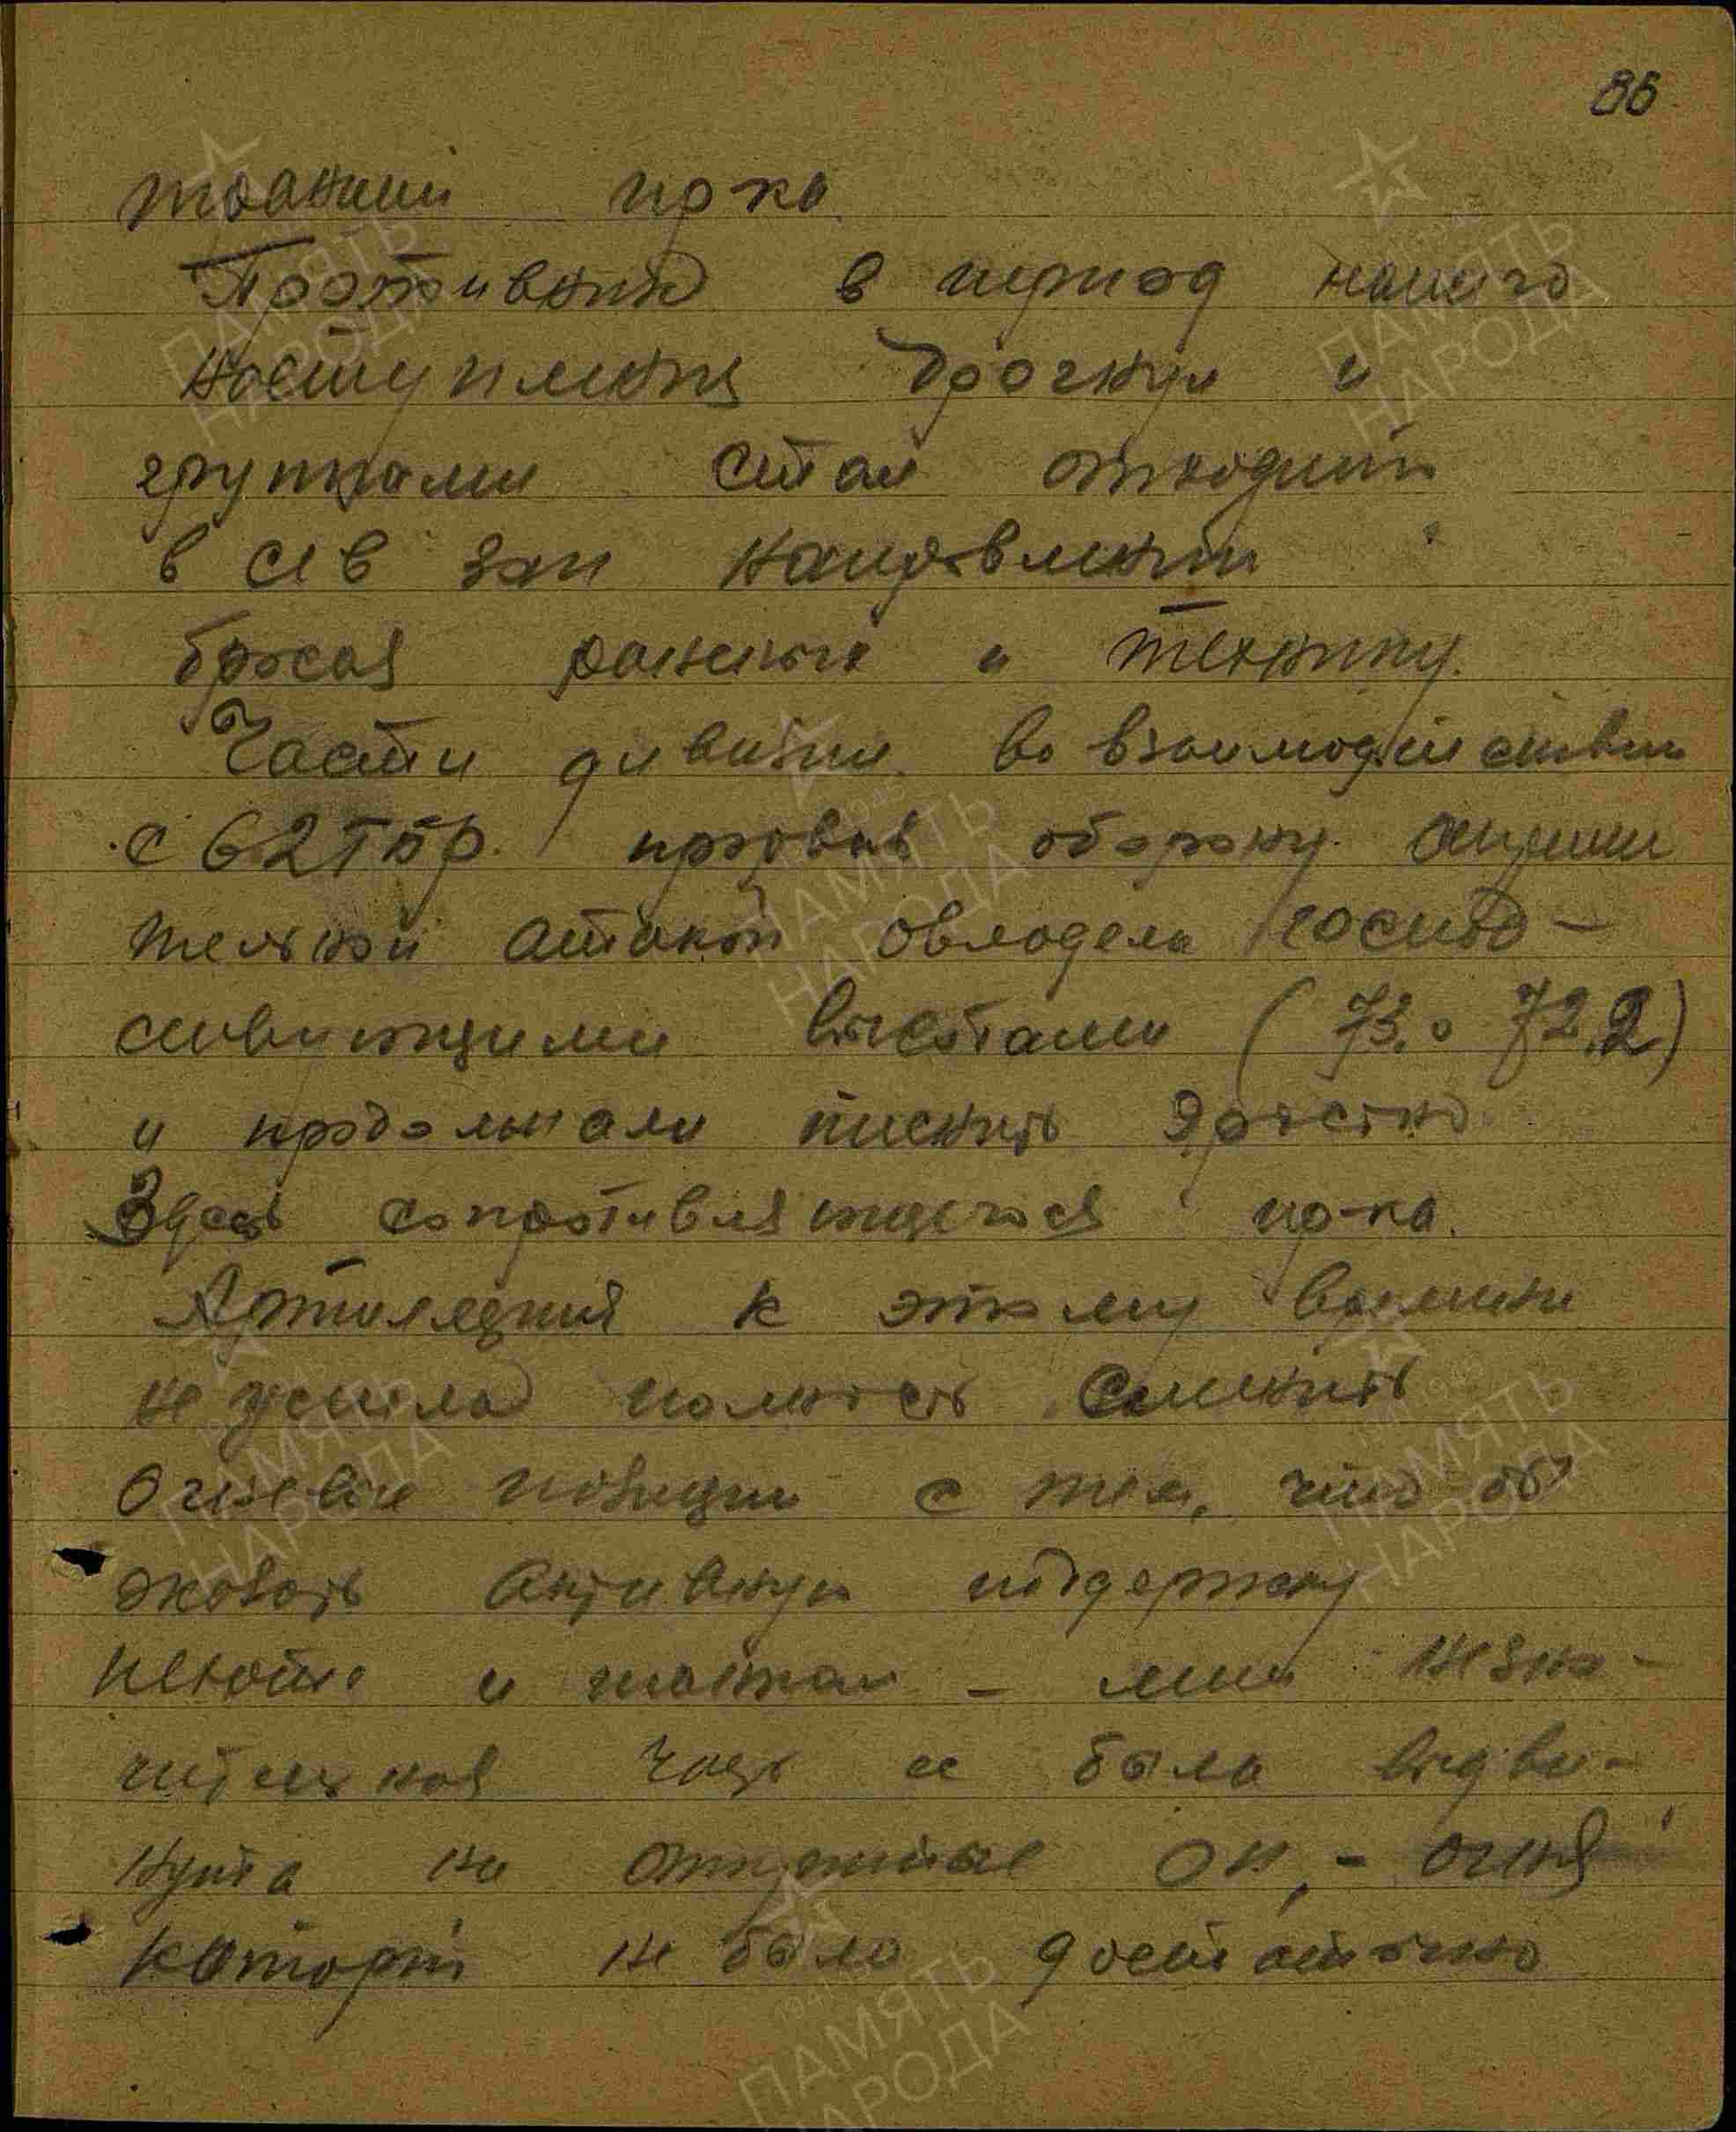 86
траншеи пр-ка
Противник в период нашего
наступления дрогнул и
группами стал отходить
в сев зап направлении
бросая раненых и технику.
Части дивизии во взаимодействии
с 62 Тбр. прорвав оборону
тельной атакой овладела господ-
ствующими высотами (73.0 72.2)
и продолжали теснить яростно
Здесь сопротивляющегося пр-ка.
Артиллерия к этому времени
не успела полность сменить
Огневые позиции с тем, что бы
оказать активную поддержку
пехоте и танкам - лишь незна-
чительная часть ее была выдви-
нута на открытые ОП, - огня
которой не было достаточно